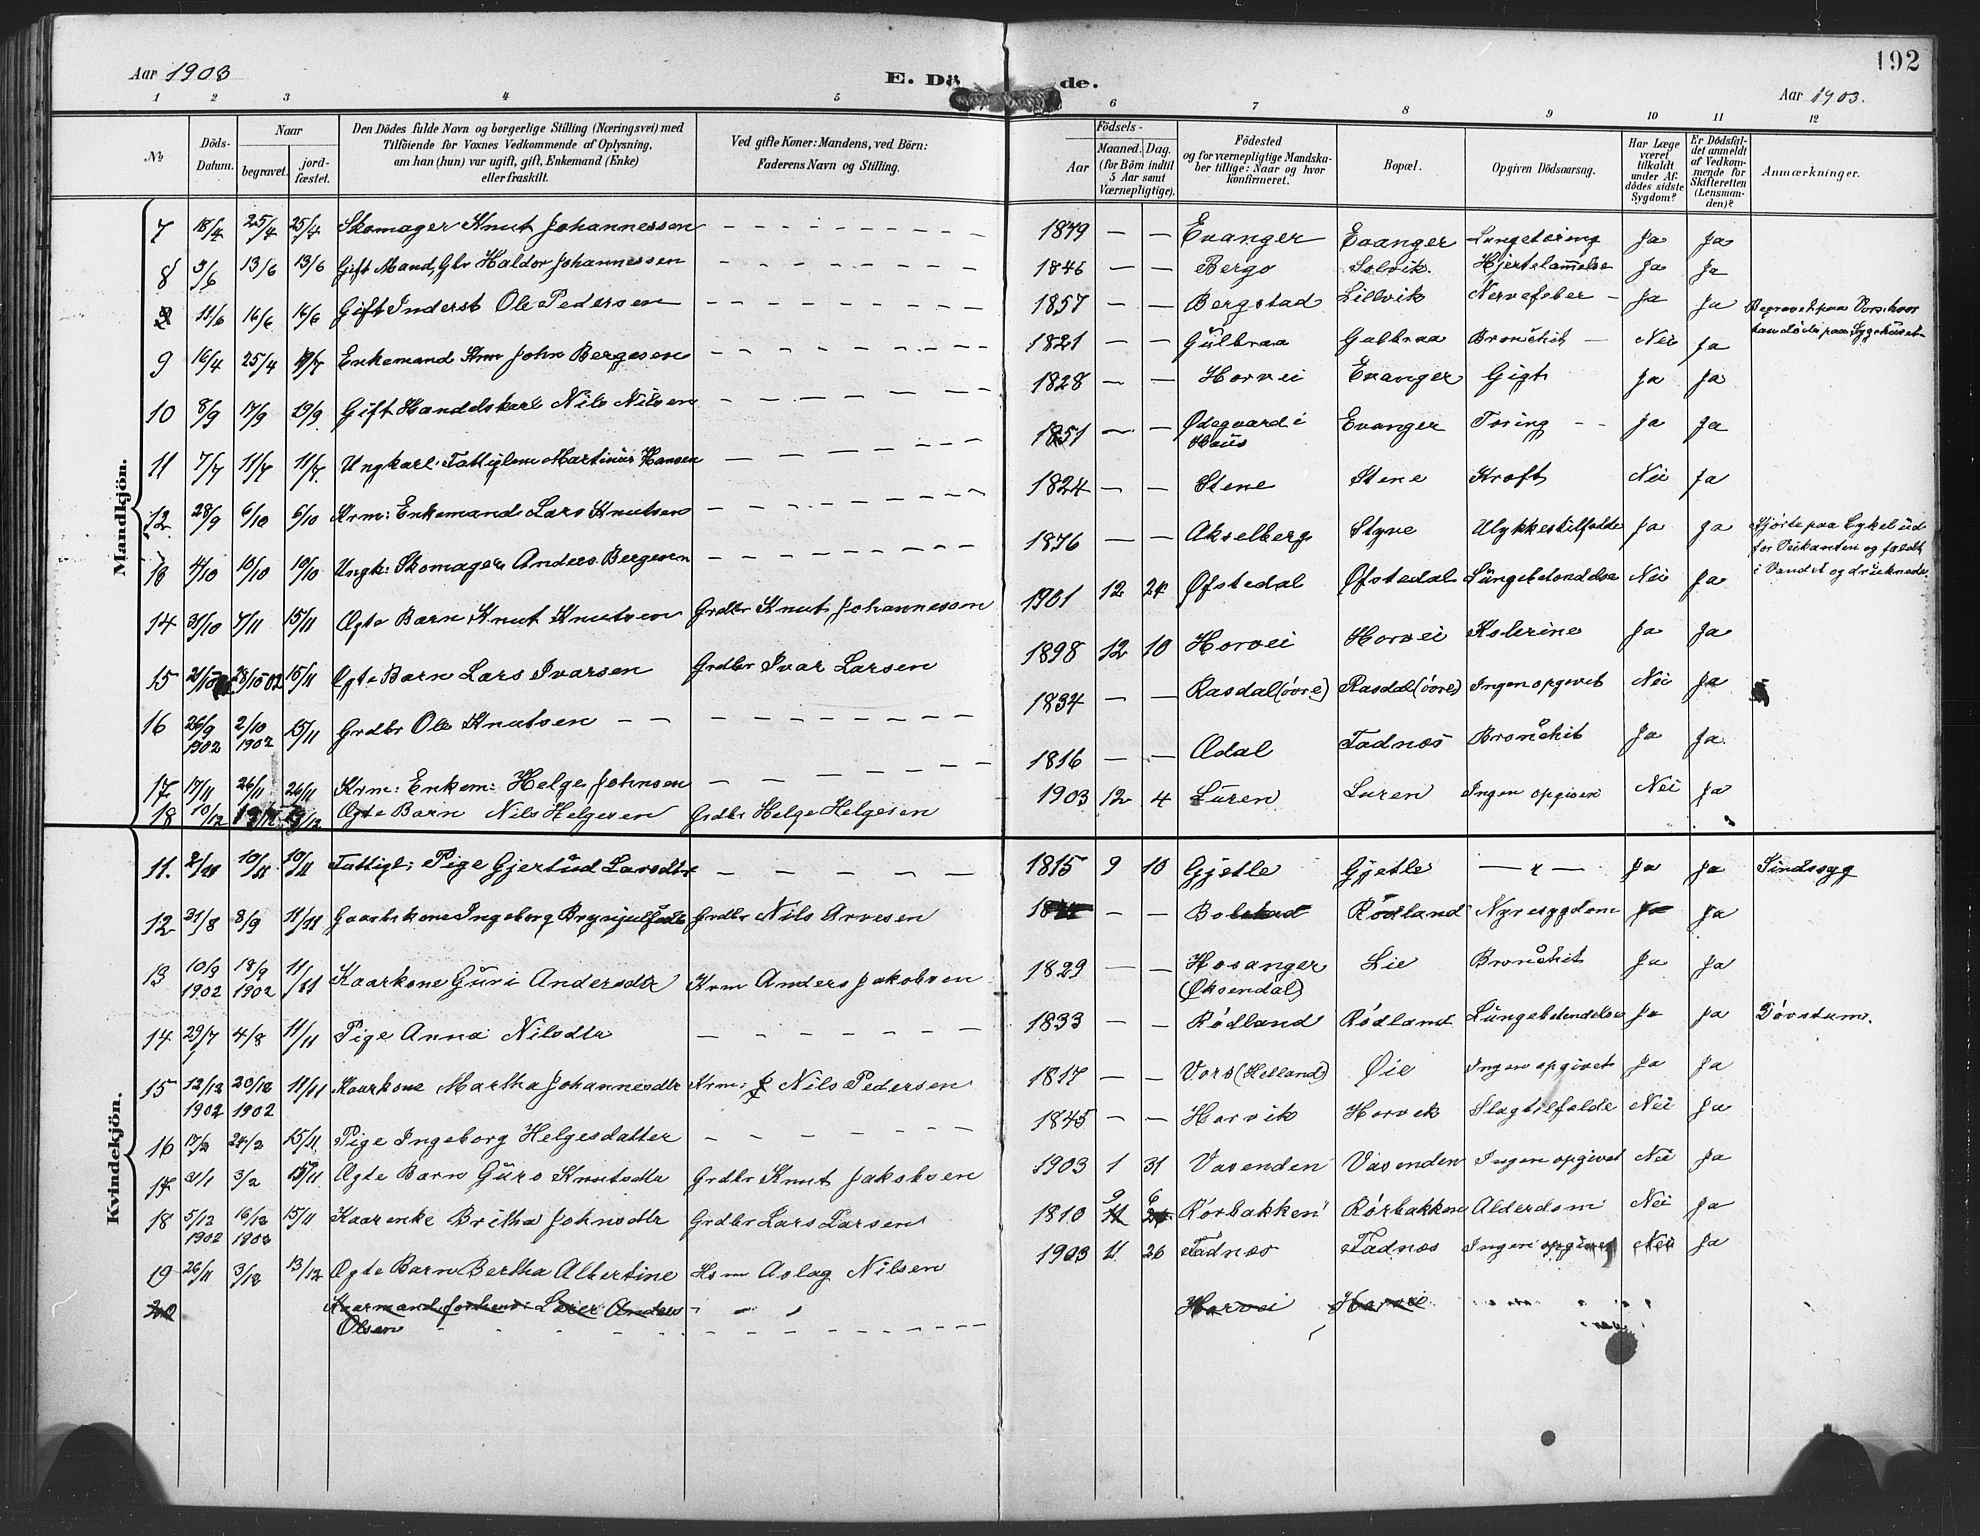 Aar 1903
E. Dö de.
192
Aar 1903.
1 2 3 4 5 6 7 8 9 10 11 12
№ Döds-Datum. Naar begravet. jord-fæstet. Den Dödes fulde Navn og borgerlige Stilling (Næringsvei) med Tilföiende for Voxnes Vedkommende af Oplysning, om han (hun) var ugift, gift, Enkemand (Enke) eller fraskilt. Ved gifte Koner: Mandens, ved Börn: Faderens Navn og Stilling. Födsels- Aar Maaned. Dag. (for Börn indtil 5 Aar samt Værnepligtige). Födested og for værnepligtige Mandskaber tillige: Naar og hvor konfirmeret. Bopæl. Opgiven Dödsaarsag. Har Læge været tilkaldt under Afdödes sidste Sygdom? Er Dödsfaldet anmeldt af Vedkommende for Skifteretten (Lensmanden)? Anmærkninger.
Mandkjön.
7 18/4 25/4 25/4 Skomager Knut Johannessen 1849 Evanger Evanger Lungetæring Ja Ja
8 3/6 13/6 13/6 Gift Mand, Gbr Haldor Johannessen 1846 Bergo Solvik. Hjertelammelse Ja Ja
11/6 16/6 16/6 Gift Inderst Ole Pedersen 1857 Bergstad Lillvik Nervefeber Ja Ja Begravet paa Vors, hvor
han døde paa Sygehuset
9 16/4 25/4 Enkemand Krm John Bergesen 1821 Gulbraa Gulbraa Bronchit Nei Ja
10 8/9 17/9 19/9 Gift Handelskarl Nils Nilsen 1828 Horvei Evanger Gigt Ja Ja
11 7/7 11/7 11/7 Ungkarl: Fattiglem Martinus Hansen 1851 Ødegaard i Evanger Tæring Ja Ja
Haus
12 28/9 6/10 6/10 Krm: Enkemand Lars Knutsen 1824 Stene Stene Kræft Nei Ja
13 4/10 10/10 10/10 Ungk: Skomager Anders Bergesen 1876 Akselberg Styve Ulykkestilfælde Ja Ja Kjørte paa Cykel ud-
for Veikanten og faldt
i Vandet og druknede.
14 31/10 7/11 15/11 Ægte Barn Knut Knutsen Grdbr Knut Johannessen 1901 12 24 Øfstedal Øfstedal Lungebetændelse Nei Ja
15 15/11 Ægte Barn Lars Ivarsen Grdbr Ivar Larsen 1898 12 10 Horvei Horvei Kolerine Ja Ja
16 26/9 1902 2/10 1902 15/11 Grdbr Ole Knutsen 1834 Rasdal (övre) Rasdal (övre) Ingen opgivet Nei Ja
17 17/11 26/11 26/11 Krm: Enkem: Helge Johnsen 1816 Ædal Fadnæs Bronchit Ja Ja.
18 10/12 Ægte Barn Nils Helgesen Grdbr Helge Helgesen 1903 12 4 Luren Luren Ingen opgiven Nei Ja
Kvindekjön.
11. 2/11 10/11 10/11 Fattigl: Pige Gjertrud Larsdtr 1815 9 10 Gjetle Gjetle Ja Ja Sindssyg
12 31/8 8/9 11/11 Gaardskone Ingeborg Brynjulfsdtr Grdbr Nils Arvesen Bolstad Rødland Nyresygdom Ja Ja
13 10/9 1902 18/9 1902 11/11 Kaarkone Guri Andersdtr Krm Anders Jakobsen 1829 Hosanger Lie Bronchit Ja Ja
(Øksendal)
14 29/7 4/8 11/11 Pige Anna Nilsdtr 1833 Rødland Rødland Lungebetendelse Ja Ja Døvstum.
15 12/12 1902 20/12 1902 11/11 Kaarkone Martha Johannesdtr Krm: Nils Pedersen 1817 Vors (Helland) Øie Ingen opgivet Ja Ja
16 17/2 24/2 15/11 Pige Ingeborg Helgesdatter 1845 Horvik Horvik Slagtilfælde Nei Ja
17 31/1 3/2 15/11 Ægte Barn Guro Knutsdtr Grdbr Knut Jakobsen 1903 1 31 Vasenden Vasenden Ingen opgivet Nei Ja
18 5/12 1902 16/12 15/11 Kaarenke Britha Johnsdtr Grdbr Lars Larsen 1810 9 6 Rörbakken Rörbakken Alderdom Nei Ja
19 26/11 3/12 13/12 Ægte Barn Bertha Albertine Hsm Aslag Nilsen 1903 11 26 Fadnæs Fadnæs Ingen opgivet Nei Ja
20 Kaarmand, forhenv: Lærer Anders Horvei Horvei
Olsen